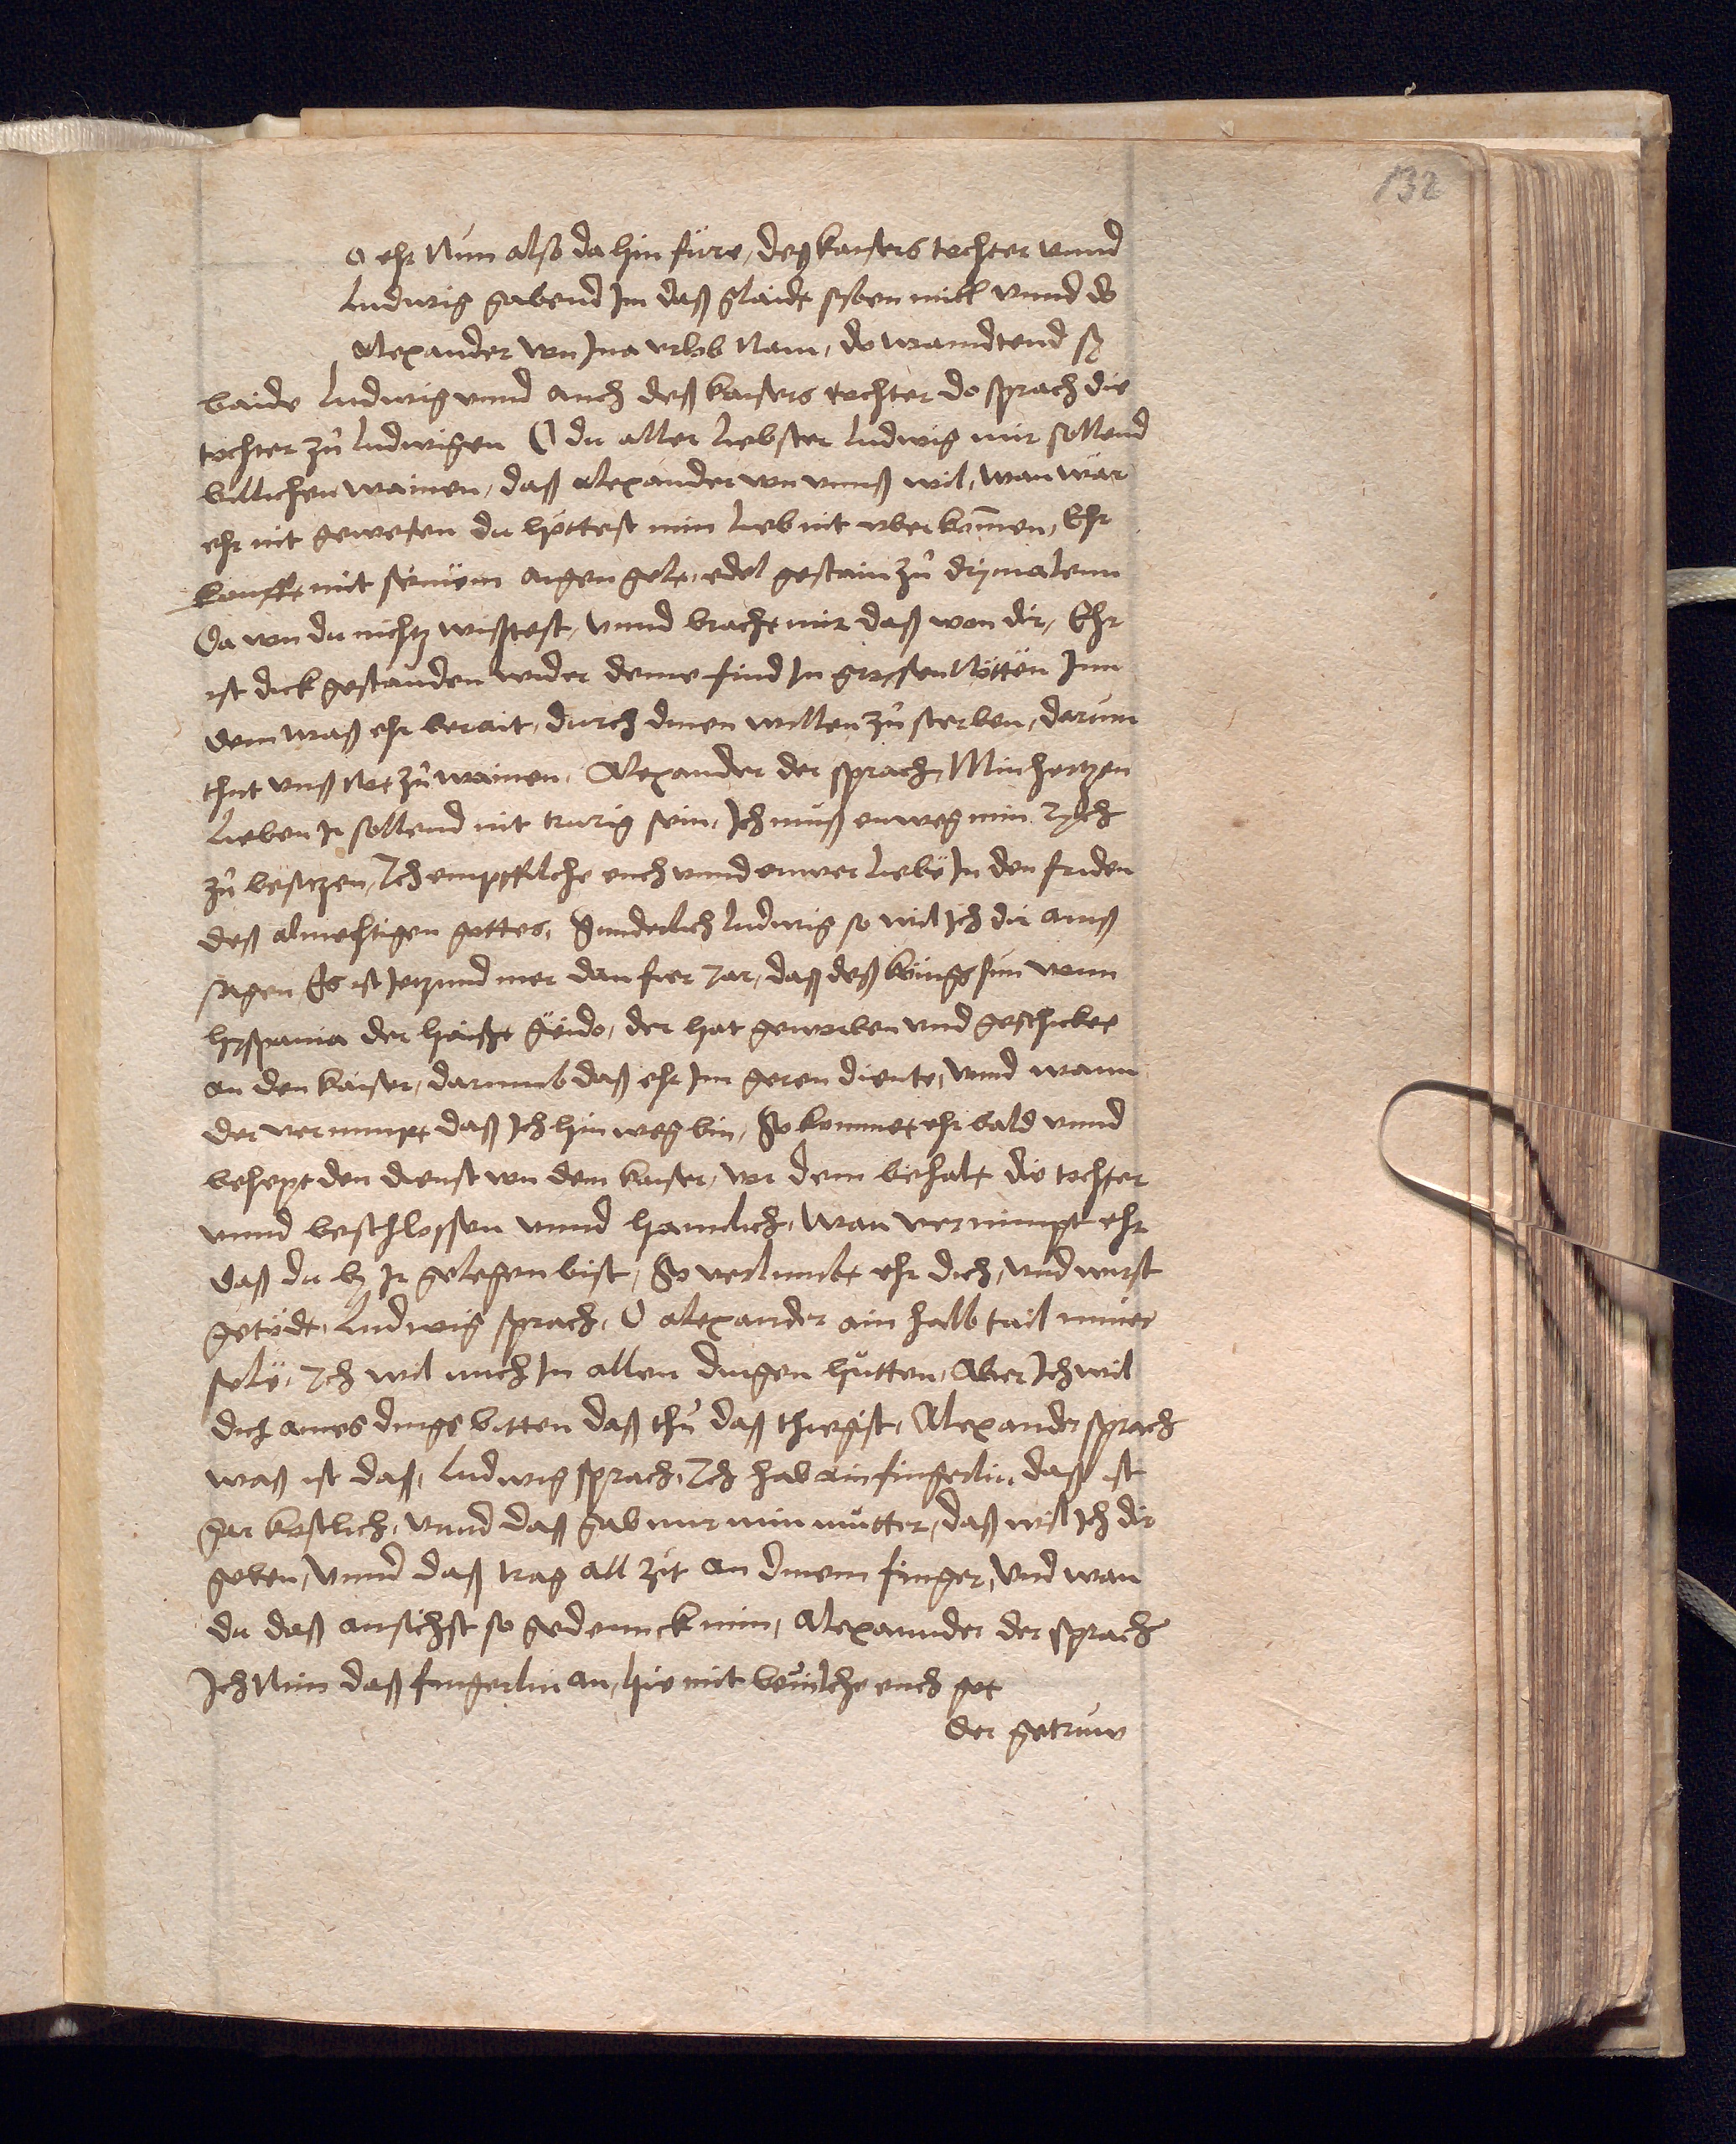 132
o ehr Nun also da hin füre, deß kaisers tochter unnd
Ludwig gabend Im daß glaide syben mill unnd do
Alexander von Ina urlob Nam, do wamdtend sy
baide Ludwig unnd auch deß kaisers tochter do sprach die
tochter zů Ludwigen O du aller liebster Ludwig mir sollend
billichen wainen, daß Alexander von unnß wil, wan wär
ehr nit gewesen du höttest min lieb nit uberkom̄en, Ehr
kaufft mit sinëm aigen gelt, edel gestain zů drÿmalenn
Da von du nichtz wißtest, unnd bracht mir daß von dir, Ehr
ist dick gestanden wider deine find In grossen Nötten Inn
dem waß ehr berait, durch dinen willen zů sterben, darum
thut unß Not zů wainen, Alexander der sprach, Min hertzen
lieben Ir sollend nit trurig sein, Ich muß enweg min rych
zů besitzen, Ich empfilche euch unnd euwer liebe In den friden
deß almechtigen gottes, Sunderlich Ludwig so wil Ich dir ainß
sagen Es ist Jetzund mer dan fier Jar, daß deß künigs sun vonn
hyspania der haißt Guido, der hat geworben und geschickt
an den kaiser, darumb daß ehr Im geren diente, unnd wann
der vernimpt daß Ich hinweg bin, So kommet ehr bald unnd
behept den dienst von dem kaiser, vor dem behalt die tochter
unnd beschlossen unnd hamlich, wan vernimpt ehr
daß du by Ir gelegen bist, So verlimbt ehr dich, und wirst
getödt, Ludwig sprach, O Alexander ain halb tail miner
selë, Ich wil mich In allen dingen hütten, Aber Ich wil
dich aines dings bitten daß thů daß thiegist, Alexander sprach
waß ist daß, Ludwig sprach, Ich hab ain fingerlin, daß ist
gar kostlich, unnd daß gab mir min můtter, daß wil Ich dir
geben, unnd daß trag all zit an dinem finger, und wan
du daß ansichst so gedennck min, Alexannder der sprach
Ich Nim daß fingerlin an, hie mit bevilche euch got
der getruw